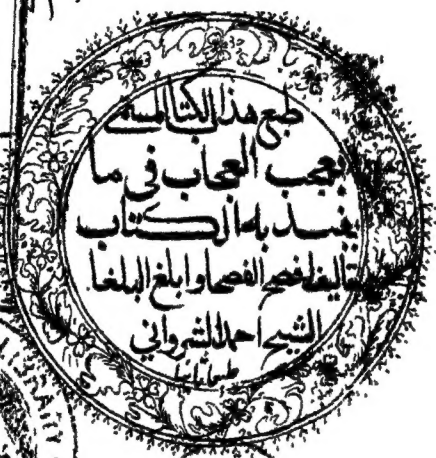 طبع هذا الكتاب المسمى
بعجب العجاب في ما
يفيد به الكتاب
تاليف افصح الفصحا وابلغ البلغا
الشيخ احمد الشرواني
طبعا ثانيا